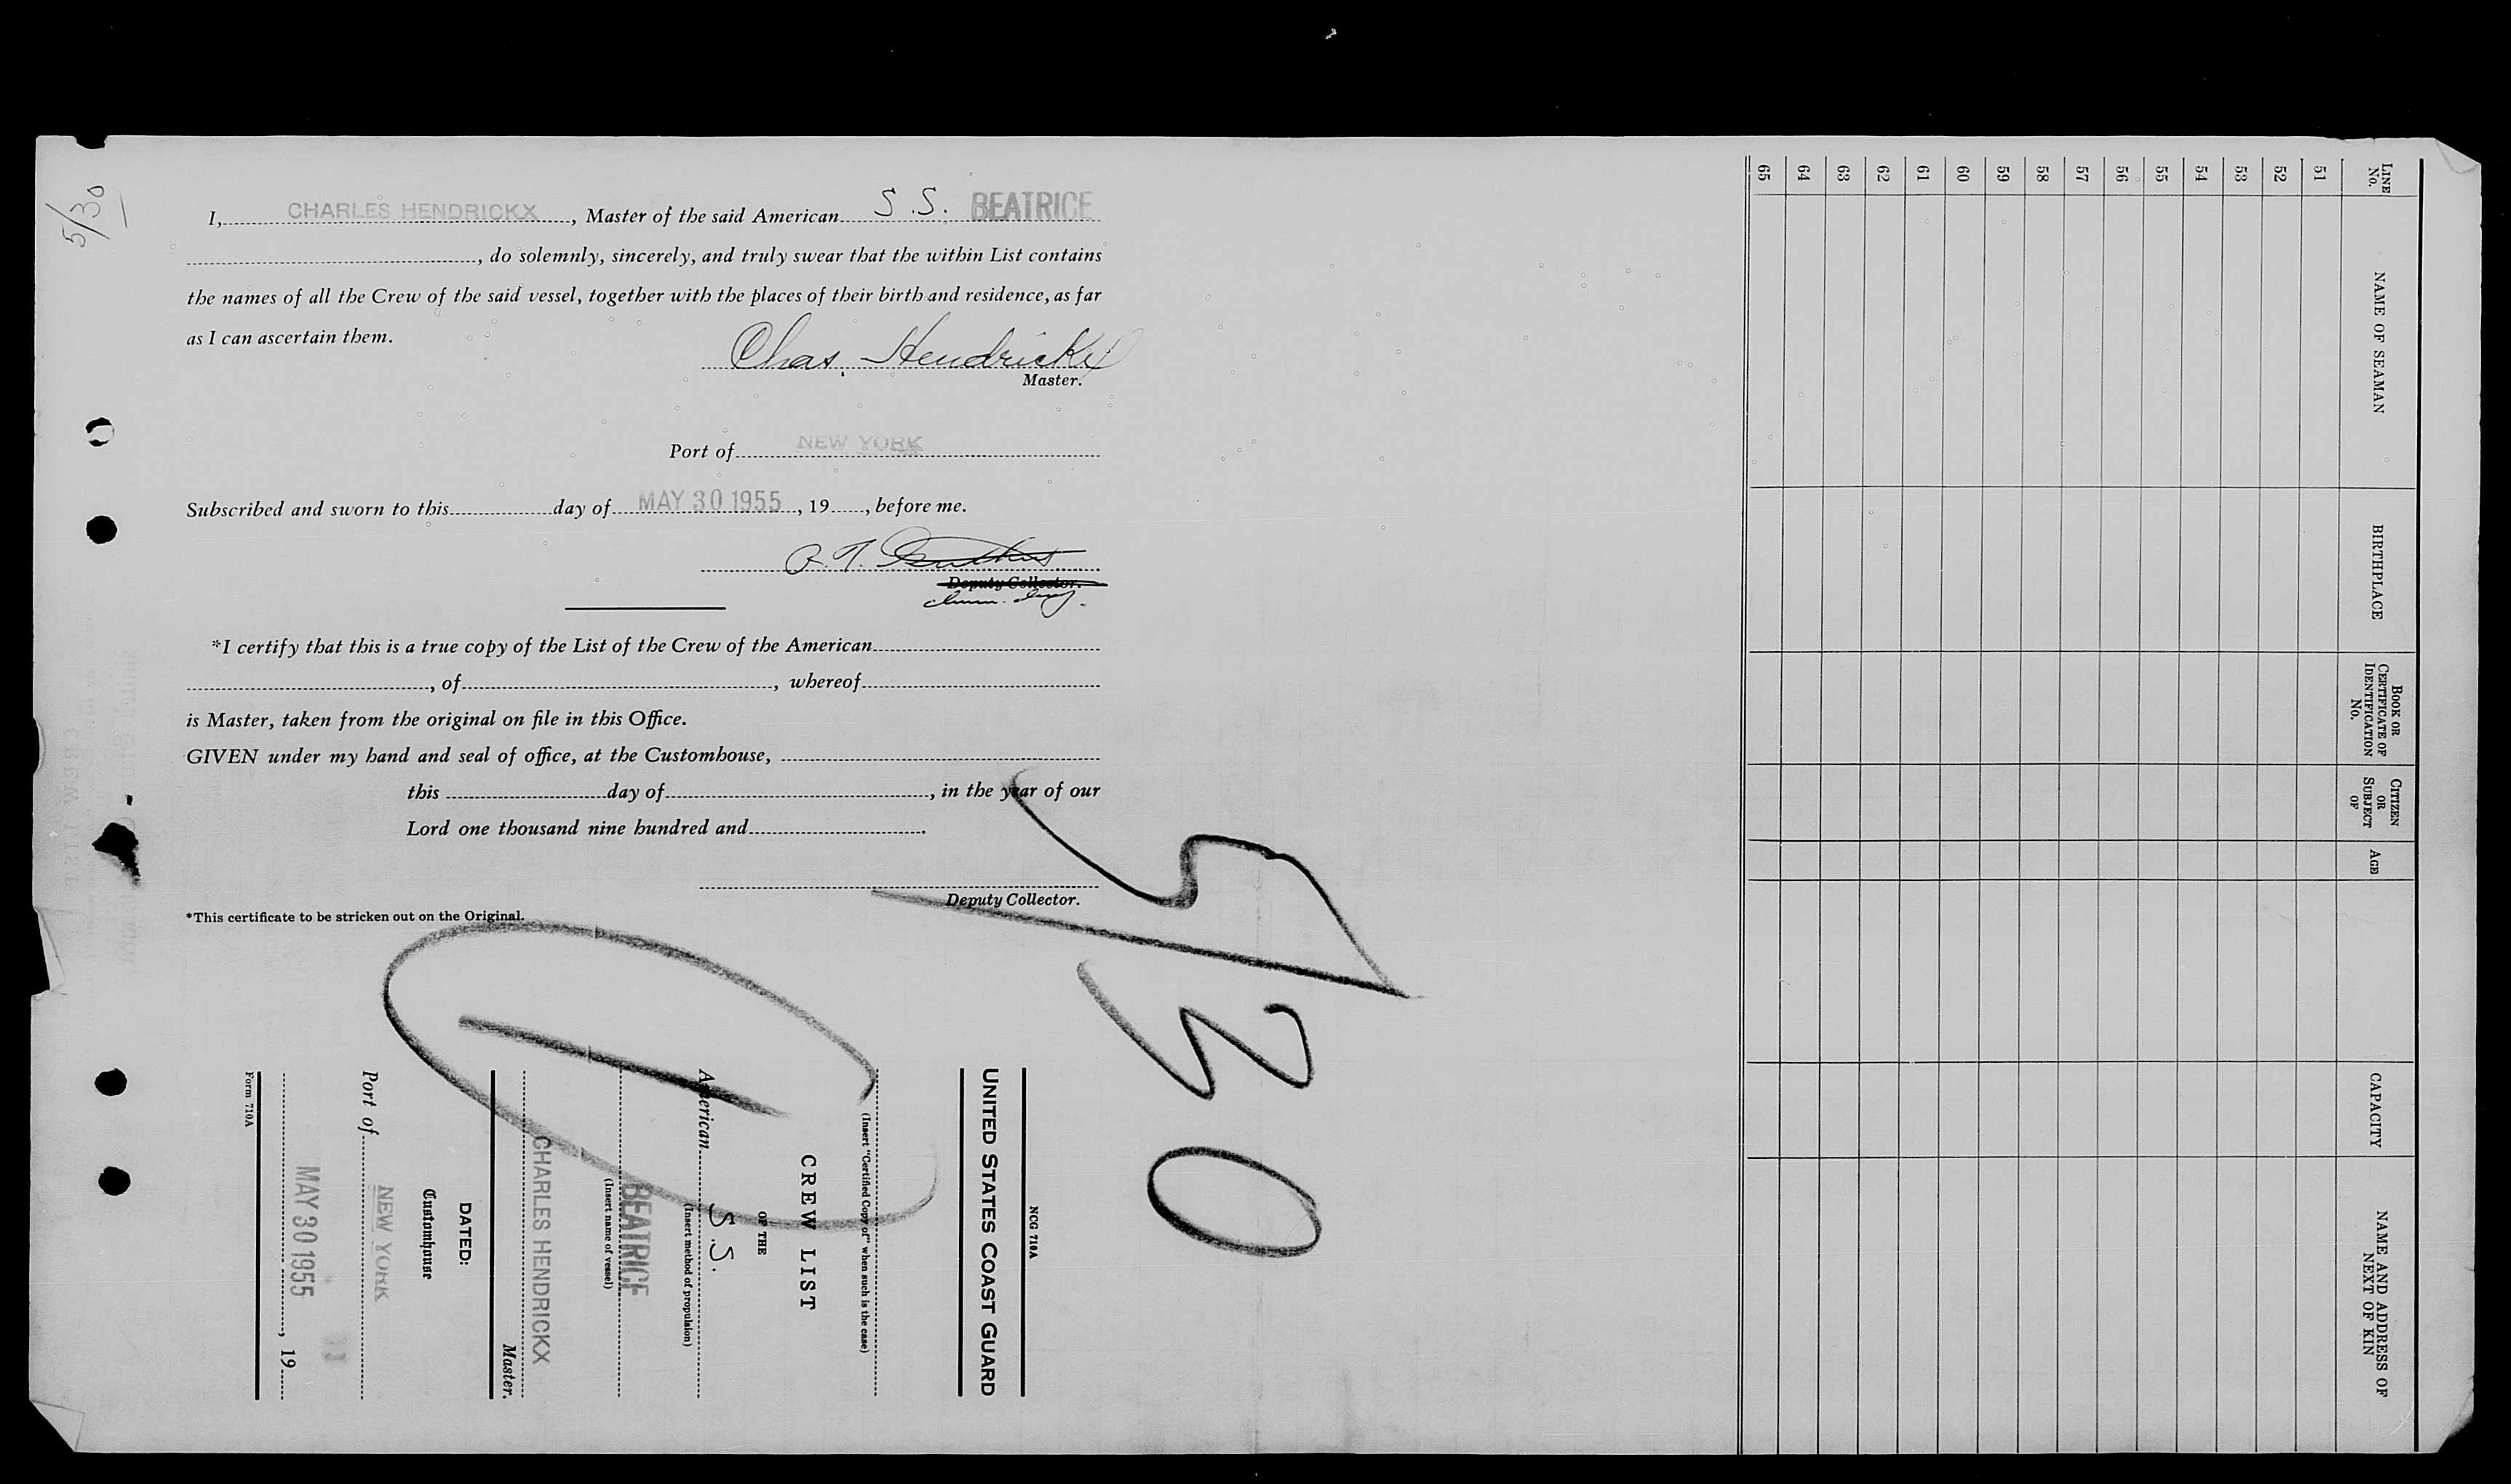 5/30
I, CHARLES HENDRICKX, Master of the said American S.S. BEATRICE
, do solemnly, sincerely, and truly swear that the within List contains
the names of all the Crew of the said vessel, together with the places of their birth and residence, as far
as I can ascertain them.
Chas. Hendrickx
Master.
Port of NEW YORK
Subscribed and sworn to this day of MAY 30 1955, 19, before me.
Deputy Collector.
*I certify that this is a true copy of the List of the Crew of the American
, of , whereof
is Master, taken from the original on file in this Office.
GIVEN under my hand and seal of office, at the Customhouse,
this day of , in the year of our
Lord one thousand nine hundred and .
Deputy Collector.
*This certificate to be stricken out on the Original.
5/30
NCG 710A
UNITED STATES COAST GUARD
(Insert "Certified Copy of" when such is the case)
CREW LIST
OF THE
American S.S.
(Insert method of propulsion)
BEATRICE
(Insert name of vessel)
CHARLES HENDRICKX
Master.
DATED:
Customhouse
Port of NEW YORK
MAY 30 1955, 19
Form 710A
LINE No. NAME OF SEAMAN BIRTHPLACE BOOK OR CERTIFICATE OF IDENTIFICATION No. CITIZEN OR SUBJECT OF AGE CAPACITY NAME AND ADDRESS OF NEXT OF KIN
51
52
53
54
55
56
57
58
59
60
61
62
63
64
65